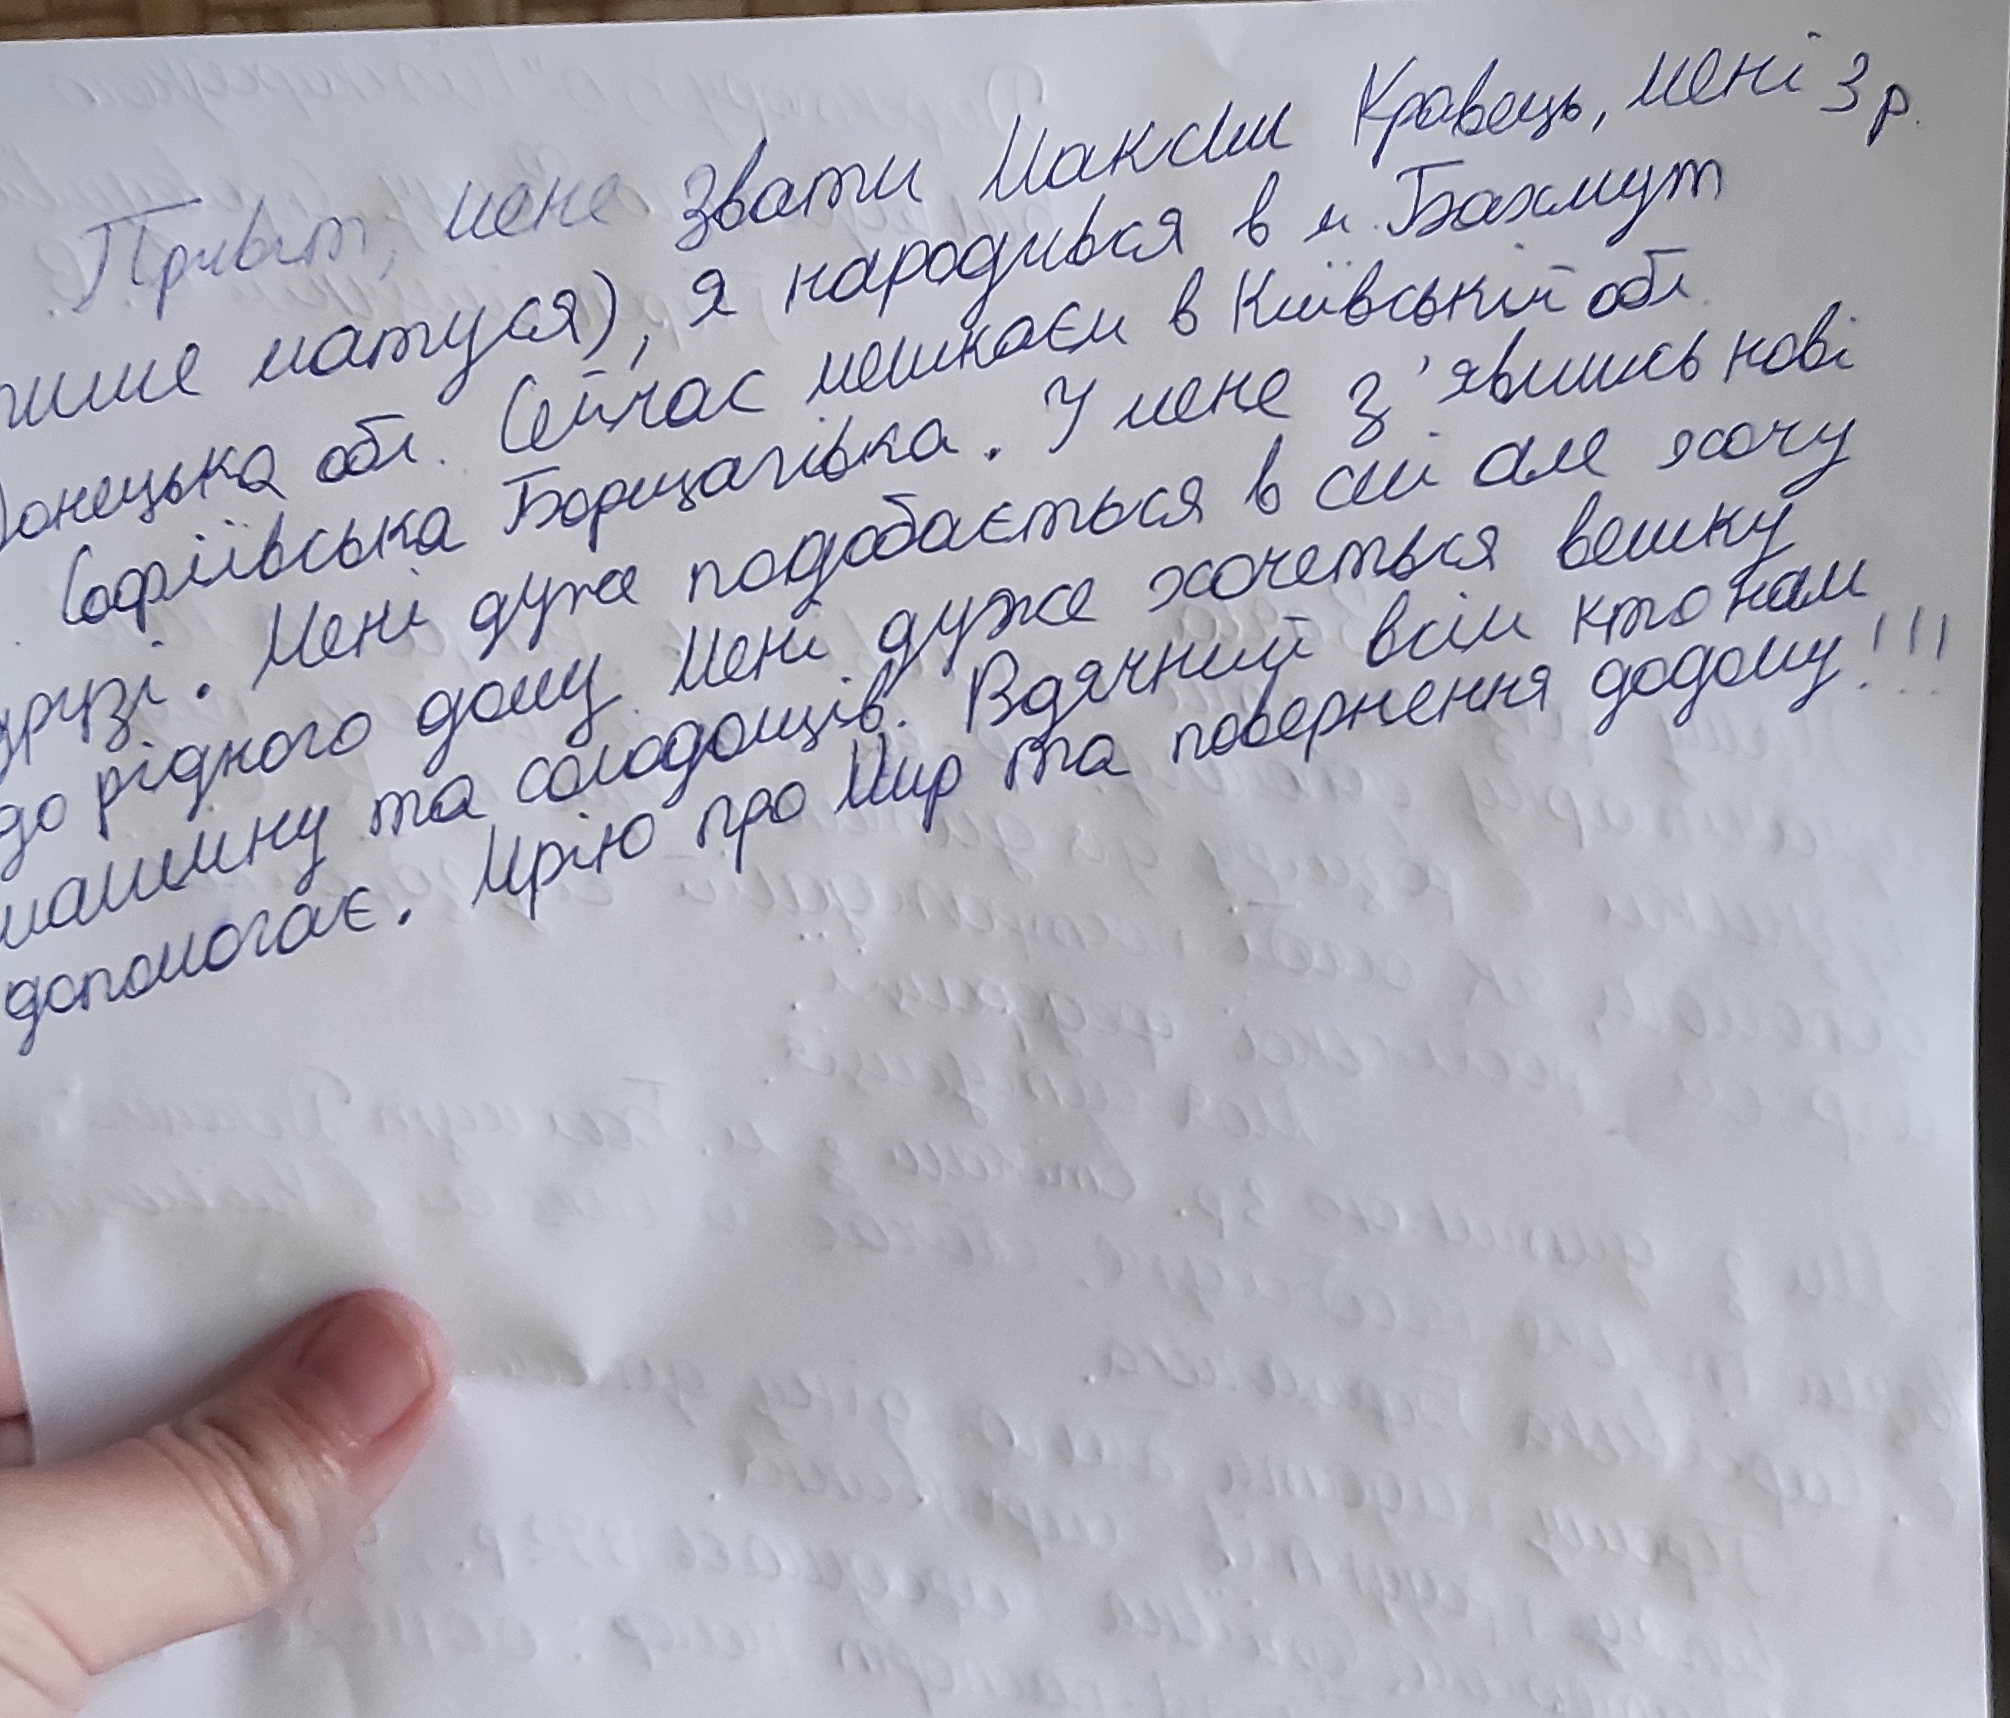 Привіт, мене звати Максим Кравець, мені 3 р.
пише матуся), я народився в м. Бахмут
Донецька обл. Сейчас мешкаєм в Київській обл.
Софіївська Борщагівка. У мене з'явились нові
друзі. Мені дуже подобається в смі але хочу
до рідного дому. Мені дуже хочеться велику
машину та солодощів. Вдячний всім кто нам
допомогає. Мрію про Мир та повернення додому!!!